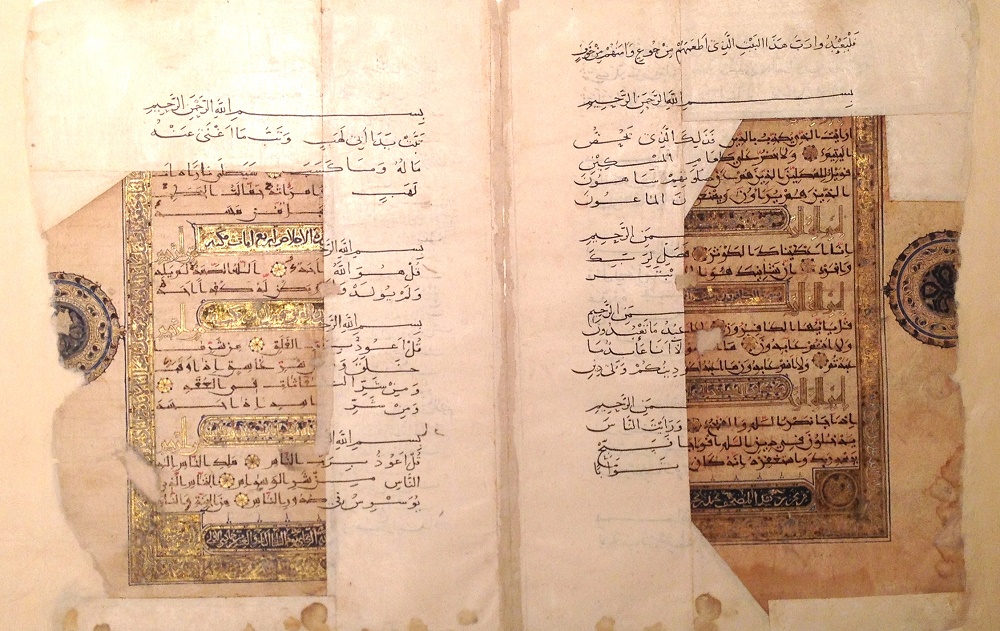 فليعبدوا رب هذا البيت الذي أطعمهم من جوع وآمنهم من خوف
بسم الله الرحمن الرحيم
ارايت الذي يكذب بالدين فذلك الذي يدع
اليتيم ولا يحض على طعام المسكين
فويل للمصلين الذين هم عن صلاتهم ساهون
الذين هم يراؤن ويمنعون الماعون
بسم الله الرحمن الرحيم
انا اعطيناك الكوثر فصل لربك
وانحر ان شانئك هو الابتر
بسم الله الرحمن الرحيم
قل يايها الكافرون لا اعبد ما تعبدون
ولا انتم عابدون ما اعبد ولا انا عابد ما
عبدتم ولا انتم عابدون ما اعبد لكم دينكم ولي دين
بسم الله الرحمن الرحيم
اذا جا نصر الله والفتح ورايت الناس
يدخلون في دين الله افواجا فسبح
بحمد ربك واستغفره انه كان توابا
بسم الله الرحمن الرحيم
تبت يدا أبي لهب وتب ما أغنى عنه
ماله وما كسب سيصلى نارا ذات
لهب وامراته حمالة الحطب
سورة الاخلاص اربع ايات مكية
بسم الله الرحمن الرحيم
قل هو الله احد الله الصمد لم يلد
ولم يولد ولم يكن له كفوا احد
بسم الله الرحمن الرحيم
قل اعوذ برب الفلق من شر ما
خلق ومن شر غاسق اذا وقب
ومن شر النفاثات في العقد
ومن شر حاسد اذا حسد
بسم الله الرحمن الرحيم
قل أعوذ برب الناس ملك الناس اله
الناس من شر الوسواس الخناس الذي
يوسوس في صدور الناس من الجنة والناس